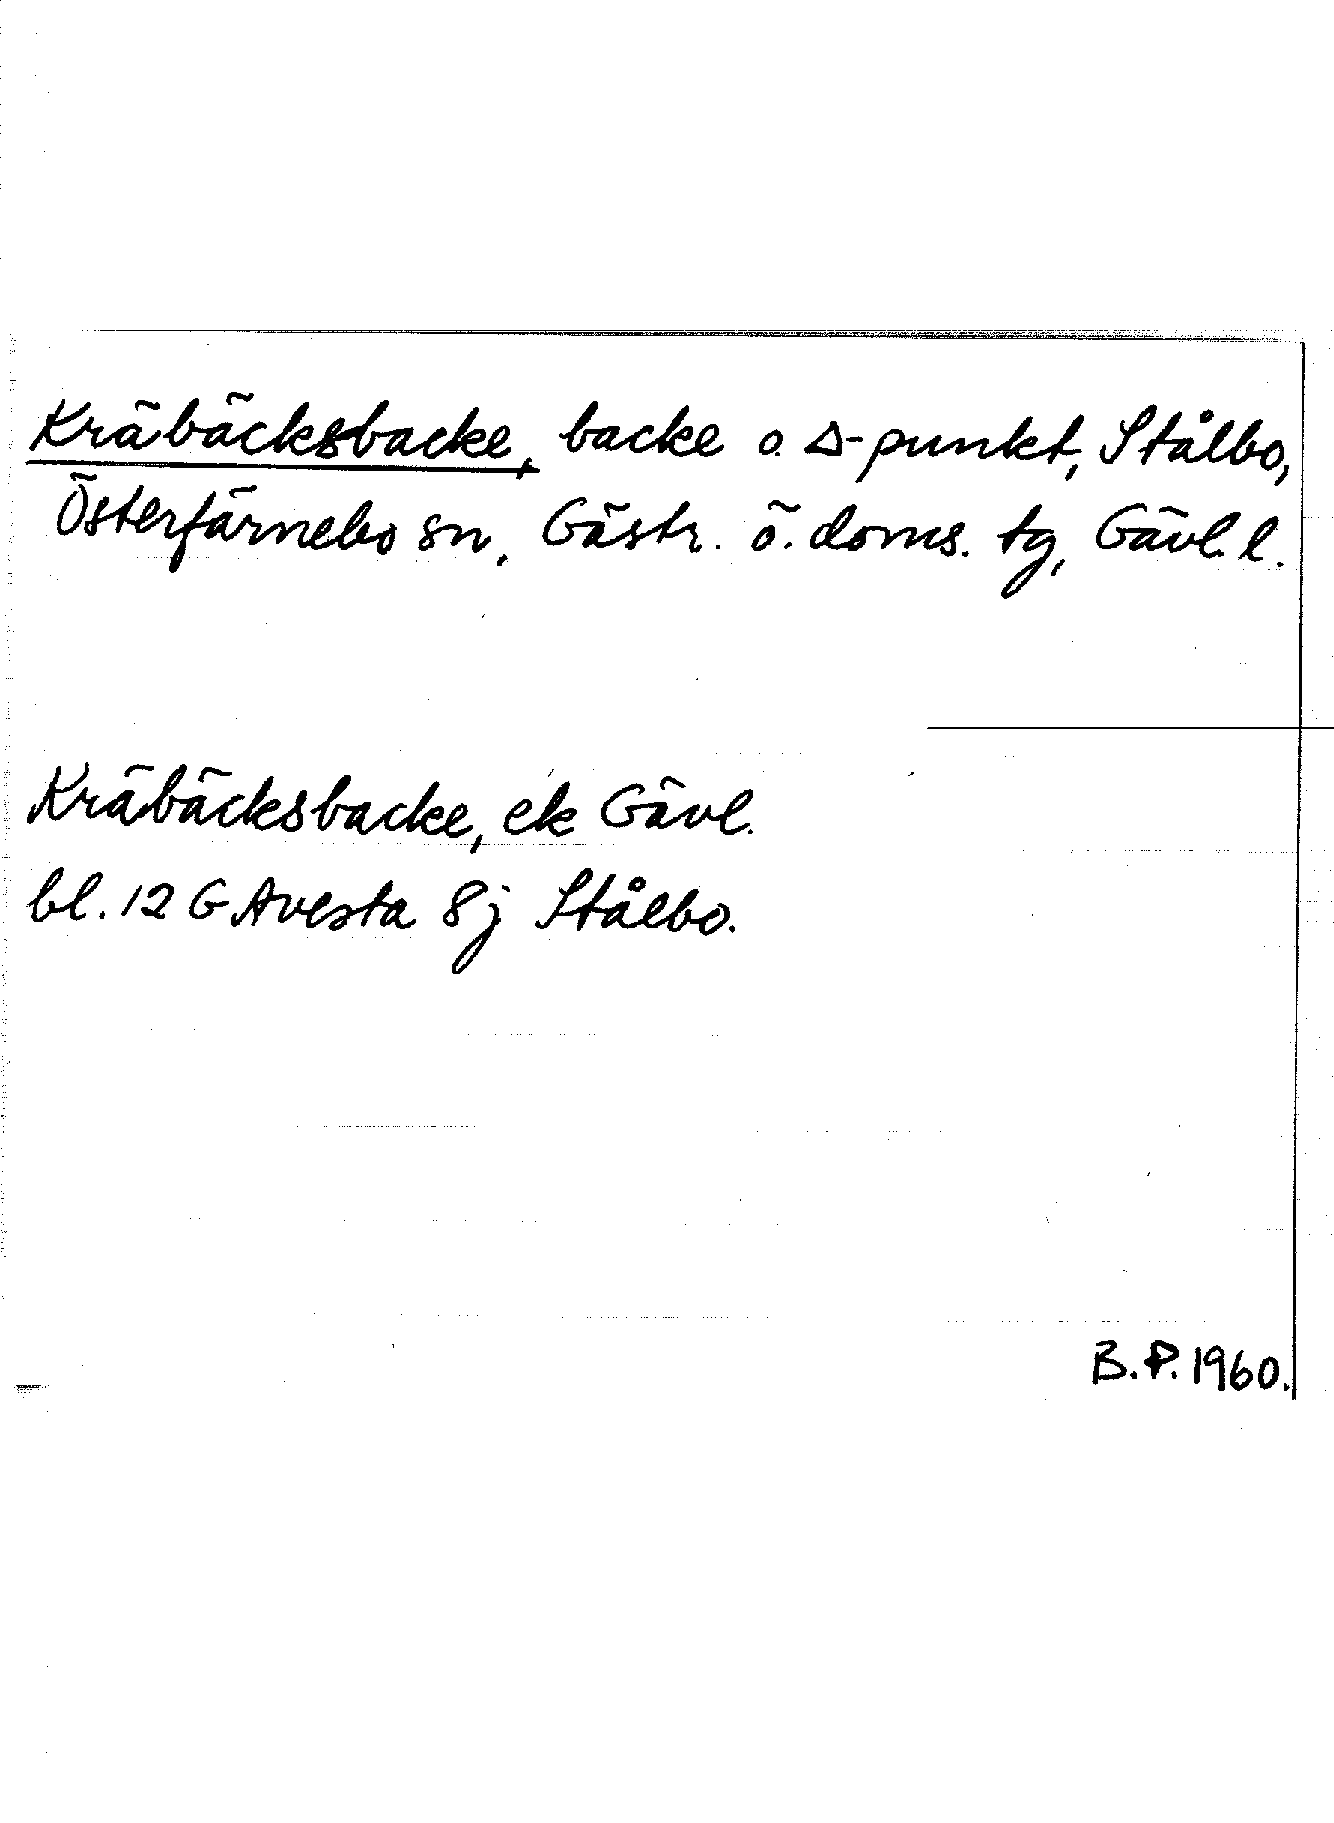 Kräbäcksbacke, backe o. Δ-punkt, Stålbo,
Österfärnebo sn, Gästr. ö. doms. tg, Gävl. l.
Kräbäcksbacke, ek Gävl.
bl. 12 G Avesta 8j Stålbo.
B.P. 1960.